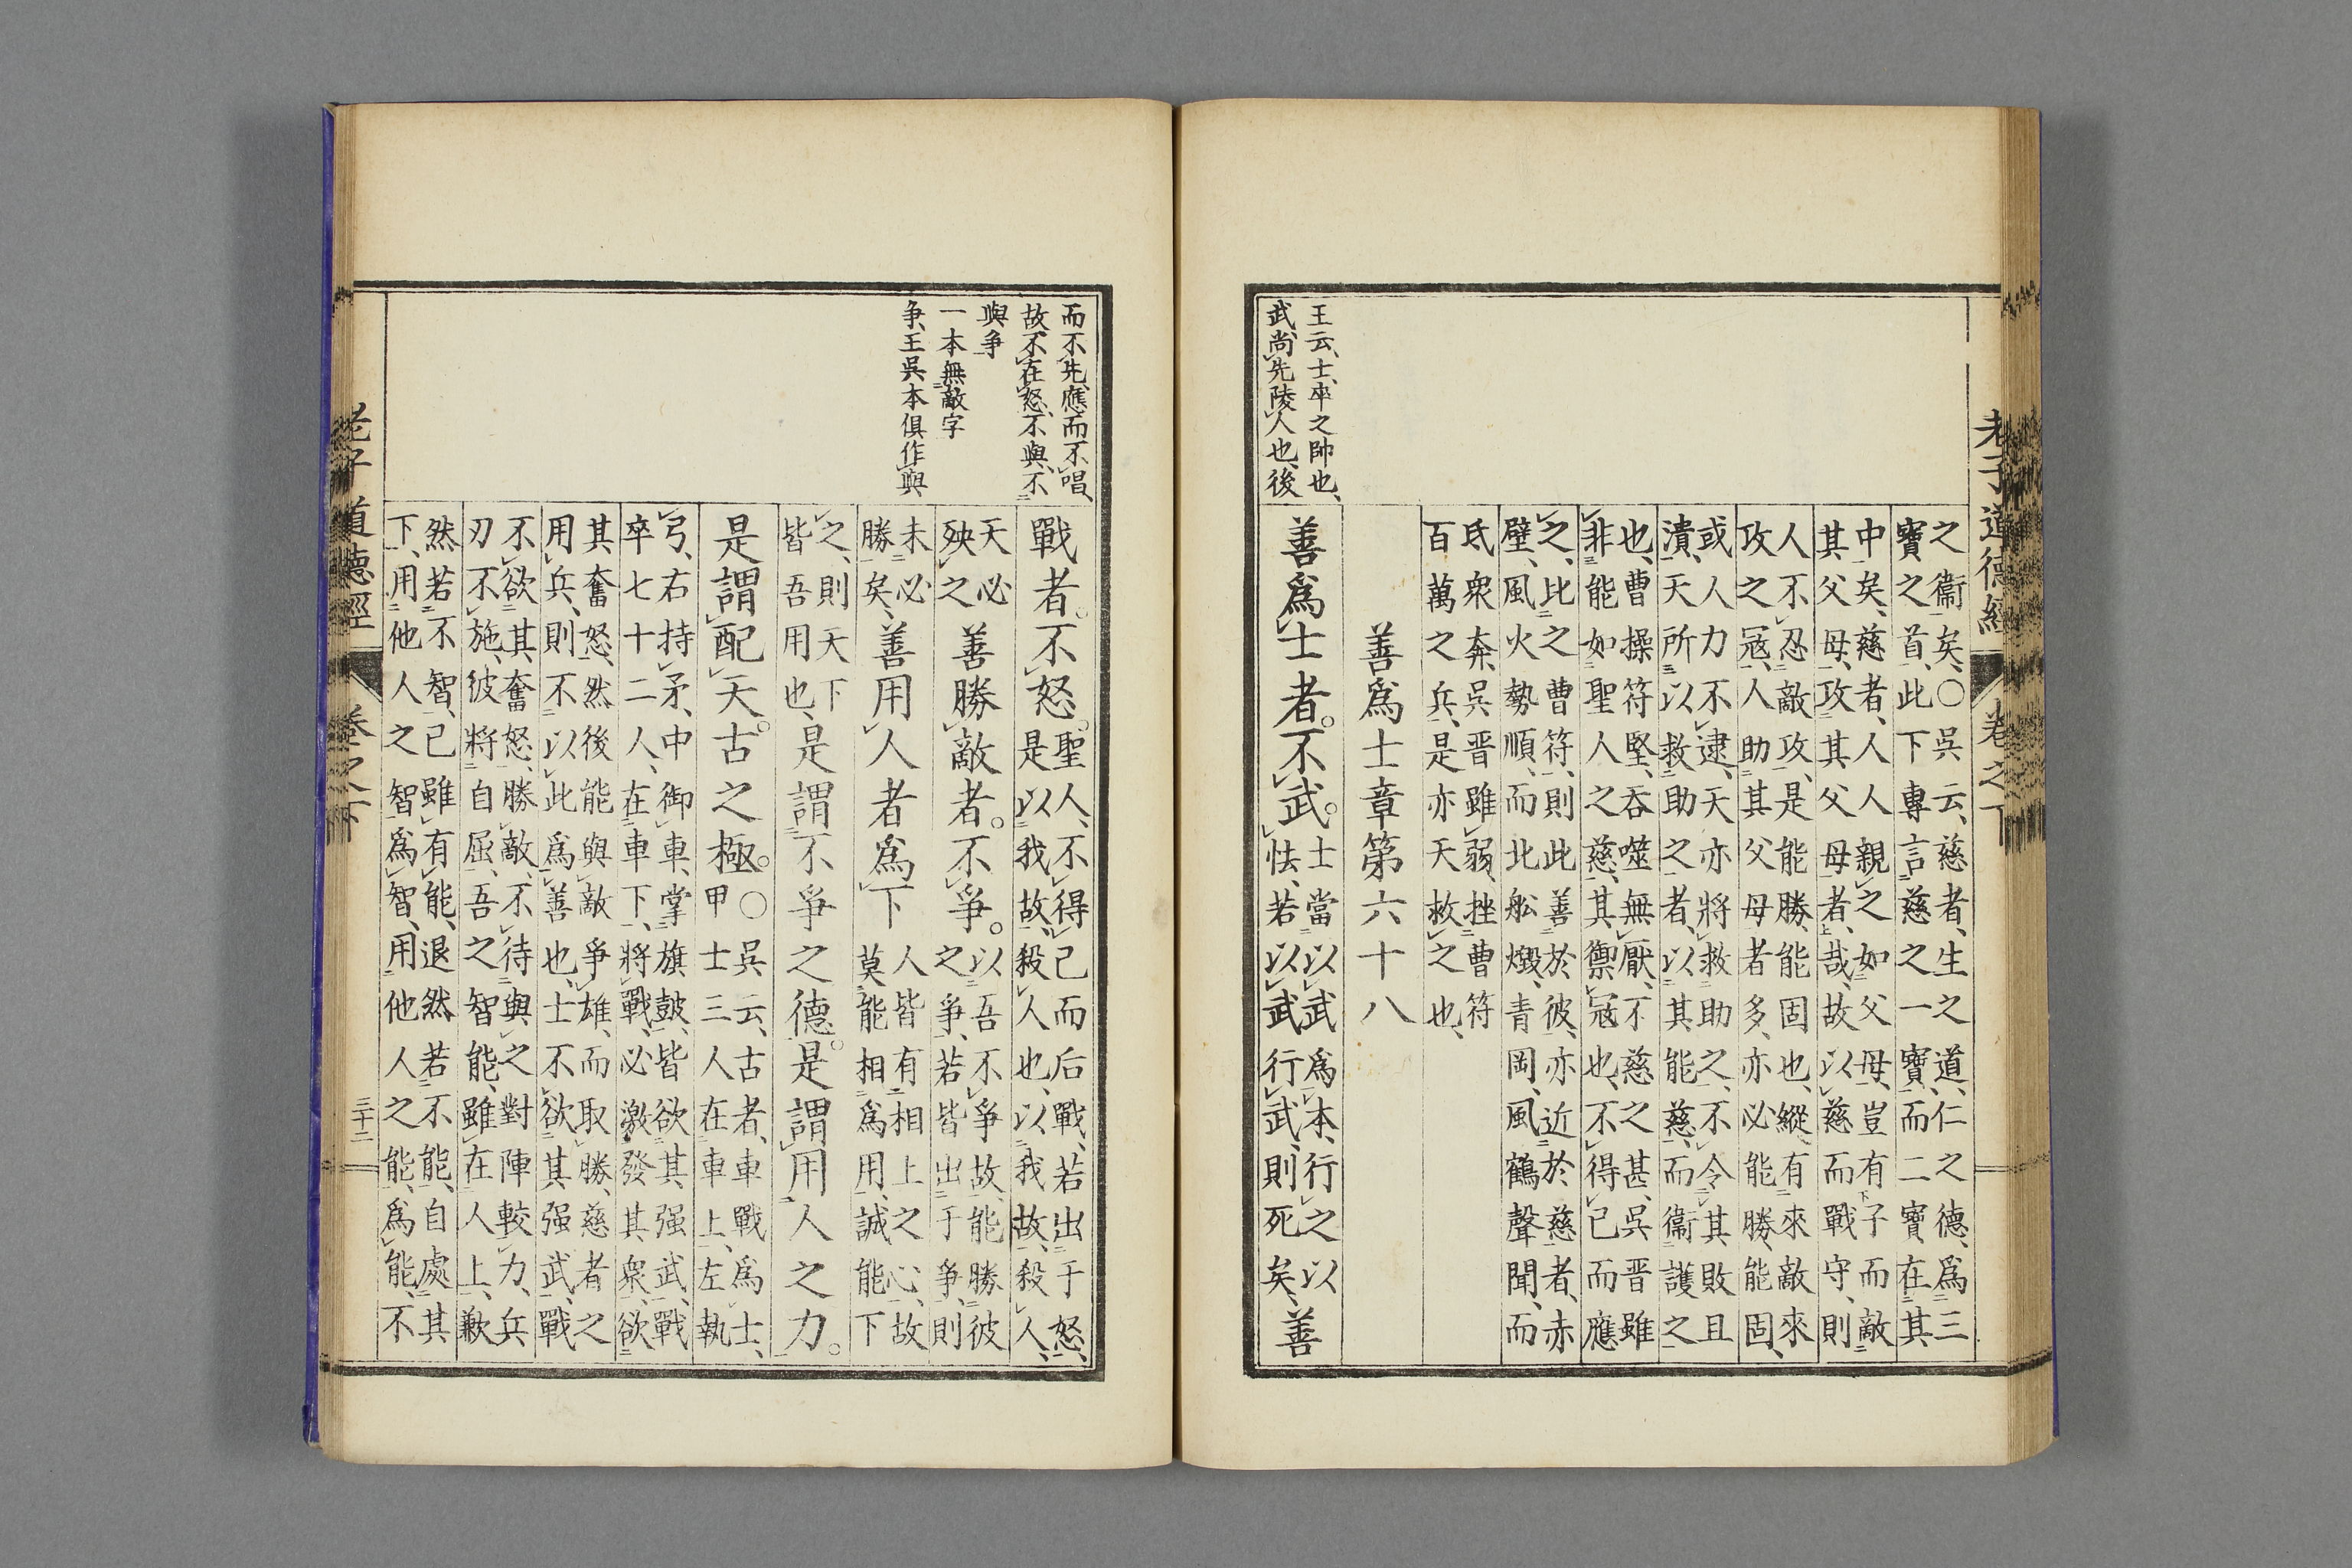 老子道德經 卷之下
王云、士、卒之帥也、
武、尚先陵人也、後
之衞矣、〇吳云、慈者、生之道、仁之德、爲三
寶之首、此下專言慈之一寶、而二寶在其
中矣、慈者、人人親之如父母、豈有子而敵
其父母、攻其父母者哉、故以慈而戰守、則
人不忍敵攻、是能勝、能固也、縱有來敵來
攻之冦、人助其父母者多、亦必能勝、能固、
或人力不逮、天亦將救助之、不令其敗且
潰、天所以救助之者、以其能慈、而衞護之
也、曹操符堅、吞噬無厭、不慈之甚、吳晋雖
非能如聖人之慈、其禦冦也、不得已而應
之、比之曹符、則此善於彼、亦近於慈者、赤
壁、風火勢順、而北舩燬、青岡、風鶴聲聞、而
氐衆奔、吳晋雖弱、挫曹符
百萬之兵、是亦天救之也、
善爲士章第六十八
善爲士者。不武。士當以武爲本、行之以怯、若以武行武、則死矣、善
而不先、應而不唱、
故不在怒、不與、不
與爭
一本無敵字
爭、王吳本俱作與
戰者。不怒。聖人、不得已而后戰、若出于怒、是以我故、殺人也、以我故、殺人、
天必殃之善勝敵者。不爭。以吾不爭故、能勝彼之爭、若皆出于爭、則
未必勝矣、善用人者爲下人皆有相上之心、故莫能相爲用、誠能下
之、則天下皆吾用也、是謂不爭之德。是謂用人之力。
是謂配天。古之極。〇吳云、古者、車戰爲士、甲士三人在車上、左執
弓、右持矛、中御車、掌旗鼓、皆欲其强武、戰
卒七十二人、在車下、將戰、必激發其衆、欲
其奮怒、然後能與敵爭雄、而取勝、慈者之
用兵、則不以此爲善也、士不欲其强武、戰
不欲其奮怒、勝敵、不待與之對陣較力、兵
刃不施、彼將自屈、吾之智能、雖在人上、歉
然若不智、已雖有能、退然若不能、自處其
下、用他人之智爲智、用他人之能、爲能、不
老子道德經 卷之下 三十二